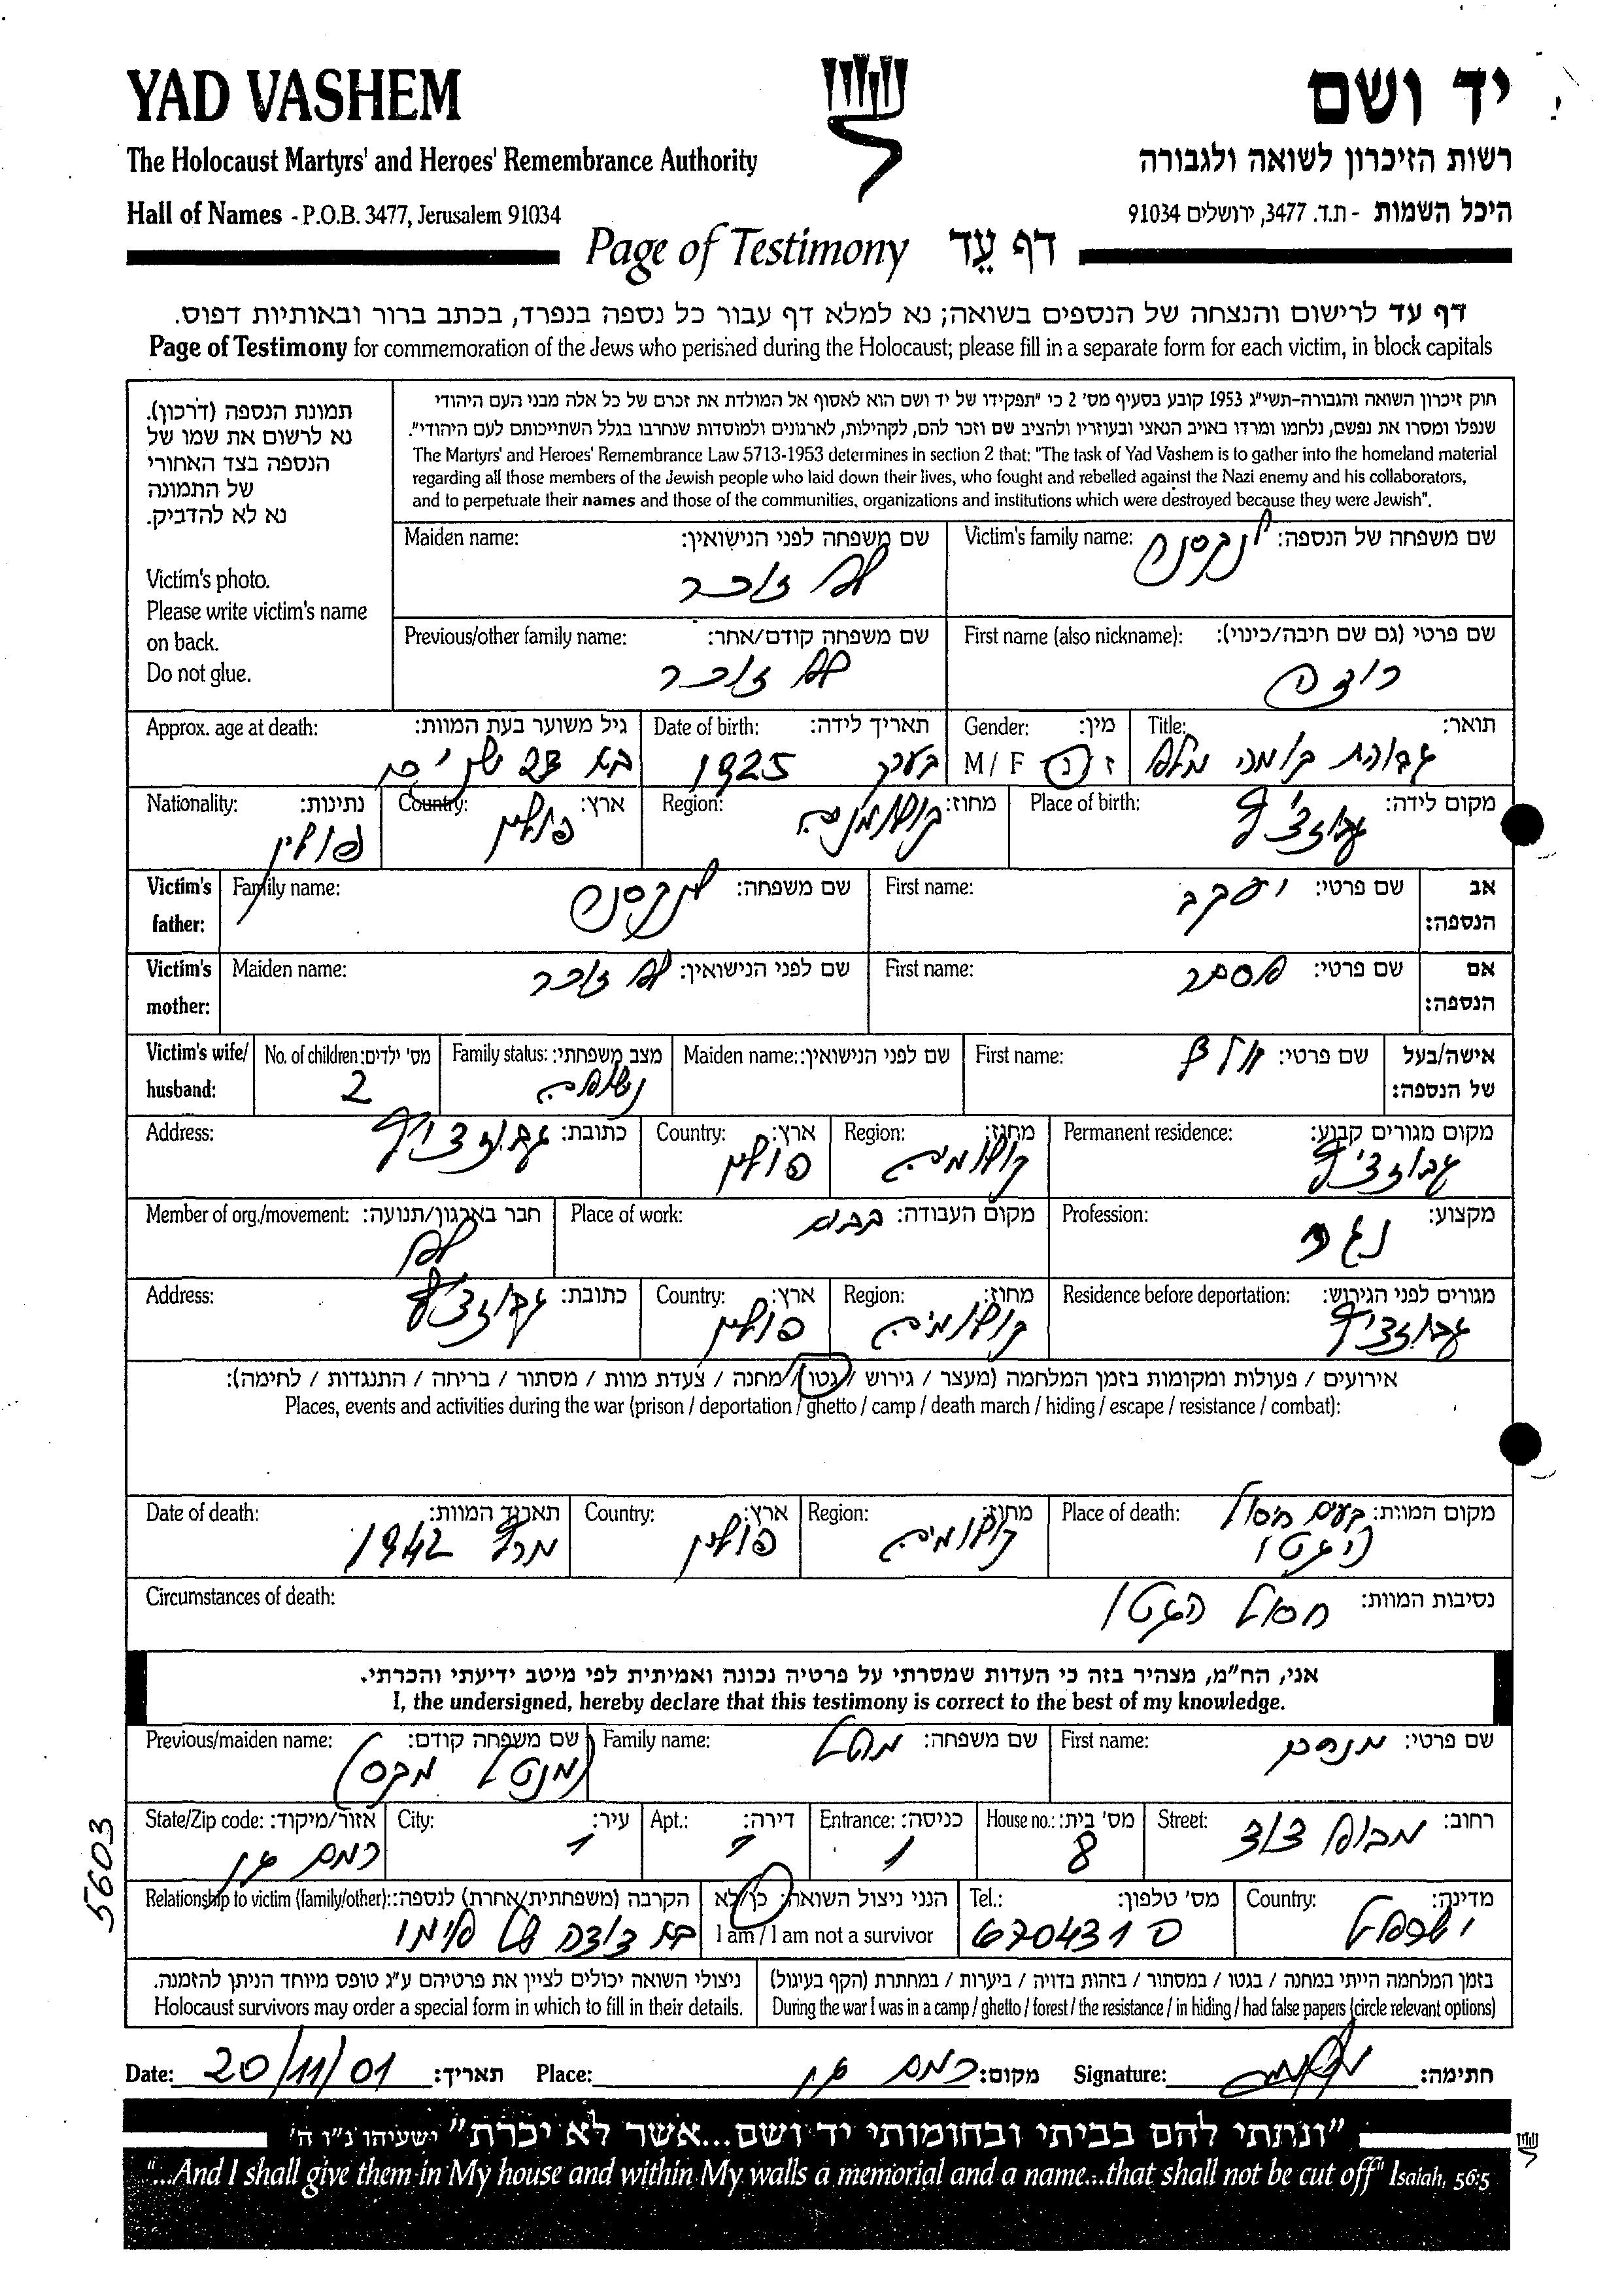 YAD VASHEM
יד ושם
The Holocaust Martyrs' and Heroes' Remembrance Authority
רשות הזיכרון לשואה ולגבורה
Hall of Names - P.O.B. 3477, Jerusalem 91034
היכל השמות - ת.ד. 3477, ירושלים 91034
Page of Testimony דף עֵד
דף עד לרישום והנצחה של הנספים בשואה; נא למלא דף עבור כל נספה בנפרד, בכתב ברור ובאותיות דפוס.
Page of Testimony for commemoration of the Jews who perished during the Holocaust; please fill in a separate form for each victim, in block capitals
תמונת הנספה (דרכון).
נא לרשום את שמו של
הנספה בצד האחורי
של התמונה
נא לא להדביק.
Victim's photo.
Please write victim's name
on back.
Do not glue.
חוק זיכרון השואה והגבורה-תשי"ג 1953 קובע בסעיף מס' 2 כי "תפקידו של יד ושם הוא לאסוף אל המולדת את זכרם של כל אלה מבני העם היהודי
שנפלו ומסרו את נפשם, נלחמו ומרדו באויב הנאצי ובעוזריו ולהציב שם וזכר להם, לקהילות, לארגונים ולמוסדות שנחרבו בגלל השתייכותם לעם היהודי".
The Martyrs' and Heroes' Remembrance Law 5713-1953 determines in section 2 that: "The task of Yad Vashem is to gather into the homeland material
regarding all those members of the Jewish people who laid down their lives, who fought and rebelled against the Nazi enemy and his collaborators,
and to perpetuate their names and those of the communities, organizations and institutions which were destroyed because they were Jewish".
Victim's family name: שם משפחה של הנספה:
Maiden name: שם משפחה לפני הנישואין:
לא זוכר
First name (also nickname): שם פרטי (גם שם חיבה/כינוי):
Previous/other family name: שם משפחה קודם/אחר:
לא זוכר
Title: תואר:
גבוהת קומה
Gender: מין:
M / F ז / נ
Date of birth: תאריך לידה:
בערך 1925
Approx. age at death: גיל משוער בעת המוות:
Place of birth: מקום לידה:
Region: מחוז:
Country: ארץ:
פולין
Nationality: נתינות:
פולין
Victim's father: אב הנספה:
First name: שם פרטי: יעקב
Family name: שם משפחה:
Victim's mother: אם הנספה:
First name: שם פרטי: אסתר
Maiden name: שם לפני הנישואין: לא זוכר
Victim's wife/ husband: אישה/בעל של הנספה:
First name: שם פרטי:
Maiden name: שם לפני הנישואין:
Family status: מצב משפחתי:
נשואה
No. of children: מס' ילדים:
2
Permanent residence: מקום מגורים קבוע:
Region: מחוז:
קולומיה
Country: ארץ:
פולין
Address: כתובת:
Profession: מקצוע:
Place of work: מקום העבודה:
Member of org./movement: חבר בארגון/תנועה:
לא
Residence before deportation: מגורים לפני הגירוש:
Region: מחוז:
קולומיה
Country: ארץ:
פולין
Address: כתובת:
אירועים / פעולות ומקומות בזמן המלחמה (מעצר / גירוש / גטו / מחנה / צעדת מוות / מסתור / בריחה / התנגדות / לחימה):
Places, events and activities during the war (prison / deportation / ghetto / camp / death march / hiding / escape / resistance / combat):
Place of death: מקום המוות: בעת חיסול
הגטו
Region: מחוז:
קולומיה
Country: ארץ:
פולין
Date of death: תאריך המוות:
מרץ 1942
Circumstances of death: נסיבות המוות: חסול הגטו
אני, הח"מ, מצהיר בזה כי העדות שמסרתי על פרטיה נכונה ואמיתית לפי מיטב ידיעתי והכרתי.
I, the undersigned, hereby declare that this testimony is correct to the best of my knowledge.
First name: שם פרטי: מנחם
Family name: שם משפחה:
Previous/maiden name: שם משפחה קודם:
Street: רחוב:
House no.: מס' בית:
8
Entrance: כניסה:
1
Apt.: דירה:
City: עיר:
State/Zip code: אזור/מיקוד:
רמת גן
Country: מדינה:
ישראל
Tel.: מס' טלפון:
6704310
הנני ניצול השואה: כן/לא
I am / I am not a survivor
Relationship to victim (family/other): הקרבה (משפחתית/אחרת) לנספה:
בת דודה של אימי
בזמן המלחמה הייתי במחנה / בגטו / במסתור / בזהות בדויה / ביערות / במחתרת (הקף בעיגול)
During the war I was in a camp / ghetto / forest / the resistance / in hiding / had false papers (circle relevant options)
ניצולי השואה יכולים לציין את פרטיהם ע"ג טופס מיוחד הניתן להזמנה.
Holocaust survivors may order a special form in which to fill in their details.
5603
Date: 20/11/01 תאריך: Place: רמת גן מקום: Signature: חתימה:
"ונתתי להם בביתי ובחומותי יד ושם...אשר לא יכרת" ישעיהו נ"ו ה'
"...And I shall give them in My house and within My walls a memorial and a name...that shall not be cut off" Isaiah, 56:5